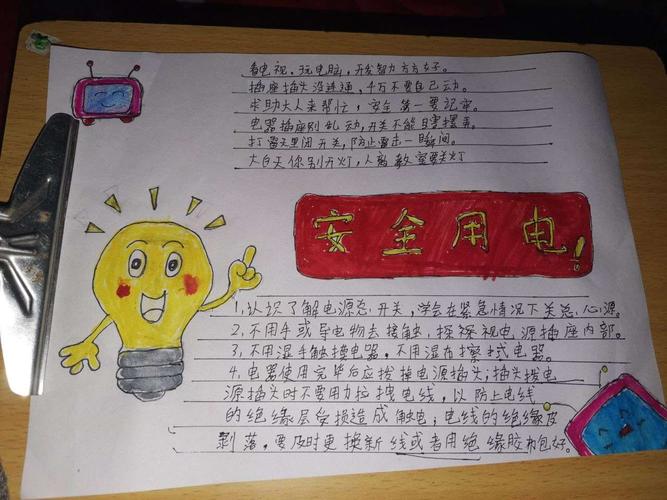 看电视、玩电脑，开发智力方方好。
插座插头没连通，千万不要自己动。
求助大人来帮忙，安全第一要记牢。
电器插座别乱动，开关不能瞎摆弄。
打雷天里闭开关，防止雷击一瞬间。
大白天你别开灯，人离教室要关灯
安全用电！
1、认识了解电源总开关，学会在紧急情况下关总心源。
2、不用手或导电物去接触，探视电源插座内部。
3、不用湿手触摸电器，不用湿布擦拭电器。
4、电器使用完毕后应拔掉电源插头；插头拔电
源插头时不要用力拉拽电线，以防止电线
的绝缘层受损造成触电；电线的绝缘皮
剥落，要及时更换新线或者用绝缘胶布包好。